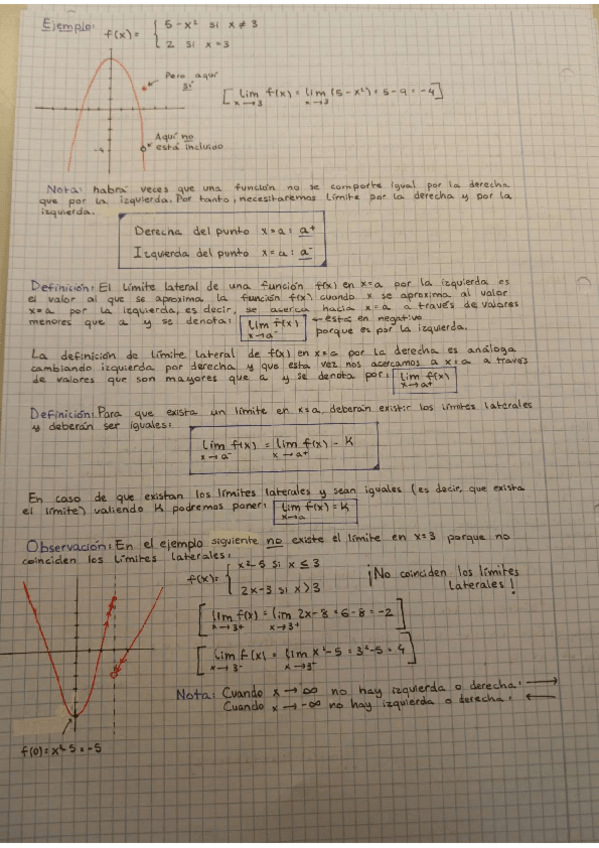 Ejemplo: f(x) = { 5-x² si x ≠ 3
2 si x = 3
Para aquí sí
[ lim f(x) = lim (5-x²) = 5-9 = -4 ]
x→3 x→3
-4
Aquí no está incluido
Nota: habrá veces que una función no se comporte igual por la derecha
que por la izquierda. Por tanto, necesitaremos límite por la derecha y por la
izquierda.
Derecha del punto x=a : a⁺
Izquierda del punto x=a : a⁻
Definición: El límite lateral de una función f(x) en x=a por la izquierda es
el valor al que se aproxima la función f(x) cuando x se aproxima al valor
x=a por la izquierda, es decir, se acerca hacia x=a a través de valores
menores que a y se denota: lim f(x) ← está en negativo
x→a⁻ porque es por la izquierda.
La definición de límite lateral de f(x) en x=a por la derecha es análoga
cambiando izquierda por derecha y que esta vez nos acercamos a x=a a través
de valores que son mayores que a y se denota por: lim f(x)
x→a⁺
Definición: Para que exista un límite en x=a, deberán existir los límites laterales
y deberán ser iguales:
lim f(x) = lim f(x) = K
x→a⁻ x→a⁺
En caso de que existan los límites laterales y sean iguales (es decir, que exista
el límite) valiendo K podremos poner: lim f(x) = K
x→a
Observación: En el ejemplo siguiente no existe el límite en x=3 porque no
coinciden los límites laterales:
f(x) = { x²-5 si x ≤ 3
2x-3 si x > 3
¡No coinciden los límites laterales!
[ lim f(x) = lim 2x-8 = 6-8 = -2 ]
x→3⁺ x→3⁺
[ lim f(x) = lim x²-5 = 3²-5 = 4 ]
x→3⁻ x→3⁻
Nota: Cuando x→∞ no hay izquierda o derecha: →
Cuando x→-∞ no hay izquierda o derecha: ←
f(0) = x²-5 = -5